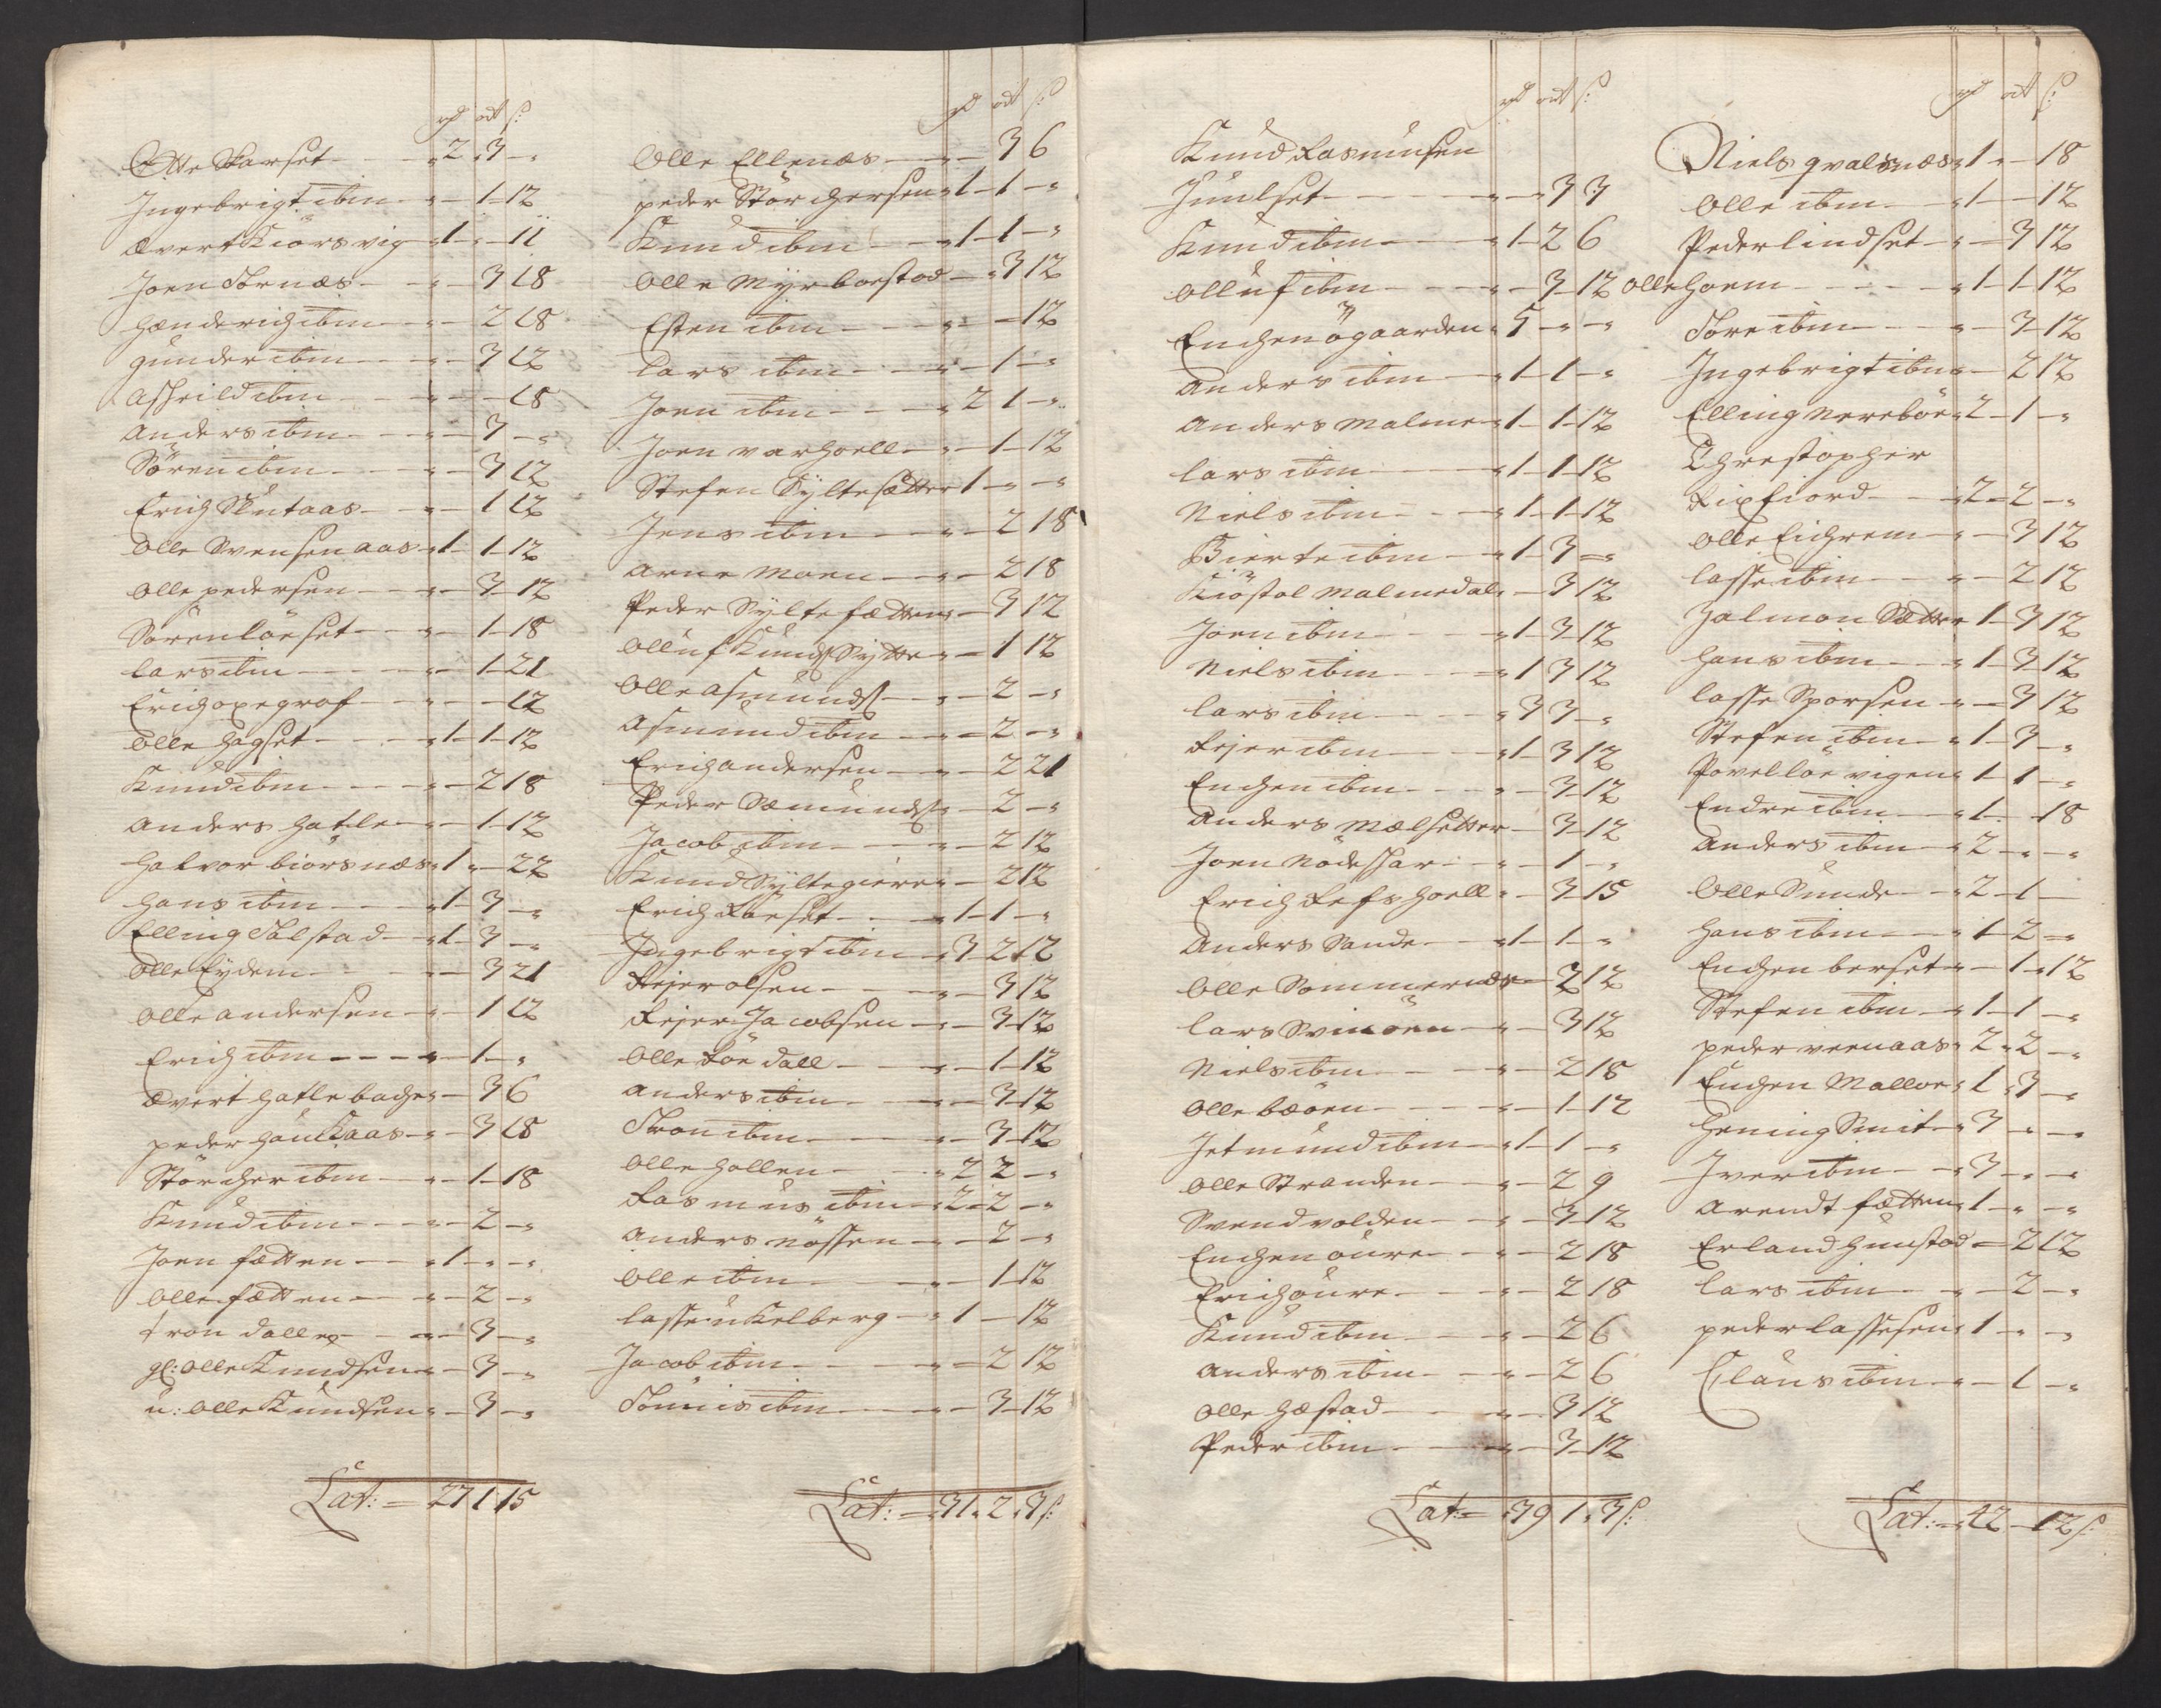 rd ort ß:
Otte Skarset - - „2 „3 - „
Ingebrigt ibm - „ - 1 - 12
Evert Kiorsvig - „1 - „ - 11
Joen Tornæs - - „ - 3 18
Hænderich ibm - „ - 2 18
Gunder ibm - „ - 3 12
Aschild ibm - - „ - - 18
Anders ibm - - „ - 3 - „
Sören ibm - - „ - 3 12
Erich Skutaas - „ - 1 12
Olle Svensen aas - „1 - 1 - 12
Olle pedersen - „ - 3 - 12
Sören löeset - „ - 1 - 18
Lars ibm - - „ - 1 - 21
Erich opegrof - - „ - - 12
Olle Hagset - „1 - 1 - 12
Knud ibm - - „ - 2 18
Anders Hatle - „ - 1 - 12
Halvor biörsnæs „1 „ - 22
Hans ibm - - „1 - 3 - „
Elling Tolstad - „1 - 3 - „
Olle Eydem - - „ - 3 21
Olle andersen - „ - 1 12
Erich ibm - - „ - 1 - „
Evert Hatlebache „ - 3 6
peder Haukaas - „ - 3 18
Störcher ibm - „ - 1 - 18
Knud ibm - - „ - 2 - „
Joen fætten - - „1 - „ - „
Olle fætten - „ - 2 - „
tron dalle - - „ - 3 - „
gl: Olle Knudsen „ - 3 - „
u: Olle Knudsen „ - 3 - „
Lat: = 27 1 15
rd ort ß:
Olle Ellenæs - - „ - 3 6
peder Störchersen „1 - 1 - „
Knud ibm - - „1 - 1 - „
Olle Myrbostad - „3 12
Esten ibm - - „ - - 12
Lars ibm - - „ - 1 - „
Joen ibm - - „2 1 - „
Joen varhoell - „ - 1 - 12
Stefen Syltesætter 1 - „ - „
Jens ibm - - „ - 2 18
Arne Moen - - „ - 2 18
Peder Sylte fætten „ - 3 12
Olluf Knuds Sylte „ - 1 12
Olle Asmunds - „ - 2 - „
Asmund ibm - „ - 2 - „
Erich andersen - „ - 2 21
Peder Semunds - „ - 2 - „
Jacob ibm - - „ - 2 12
Knud Syltegiere „ - 2 12
Erich Röeset - - „1 - 1 - „
Ingebrigt ibm - „3 - 2 12
Rejer olsen - - „ - 3 12
Rejer Jacobsen - „ - 3 12
Olle Röe dall - - „ - 1 - 12
Anders ibm - - „ - 3 12
Tron ibm - - „ - 3 12
Olle Hollen - - „2 2 - „
Rasmus ibm - „2 - 2 - „
Anders Nossen - „ - 2 - „
Olle ibm - - „ - 1 12
Lasse ukelberg - „1 - 12
Jacob ibm - - „ - 2 12
Tönnis ibm - - „ - 3 - 12
Lat: = 31 „ 2 „ 3 ß:
rd ort ß:
Knud Rasmusen
Juulset - - „ - „3 3
Knud ibm - - „1 - 2 6
Olluf ibm - - „ - 3 - 12
Enchen ögaarden „5 - „ - „
Anders ibm - „1 - 1 - „
Anders Malme „1 - 1 - 12
Lars ibm - - „1 - 1 - 12
Niels ibm - - „1 - 1 - 12
Bierte ibm - „1 - 3 - „
Kiöstol Malmedal „ - 3 12
Joen ibm - - „1 - 3 - 12
Niels ibm - - „1 3 12
Lars ibm - - „3 3 - „
Rejer ibm - - „1 - 3 12
Enchen ibm - - „ - 3 - 12
Anders Mælsetter - 3 - 12
Joen Nödeskar - „ - 1 - „
Erich Refshoell „ - 3 15
Anders Sande - „1 - 1 - „
Olle Sommernæs „ - 3 12
Lars Svinöen - „ - 3 12
Niels ibm - - „ - 2 18
Olle bæöen - - „ - 1 - 12
Jetmund ibm - „1 - 1 - „
Olle Stranden - „ - 2 9
Svend volden - „ - 3 12
Enchen oure - - „ - 2 18
Erich oure - - „ - 2 18
Knud ibm - - „ - 2 6
Anders ibm - - „ - 2 6
Olle Hæstad - - „ - 3 12
Peder ibm - - „ - 3 - 12
Lat: = 39 1 „ 3 ß:
rd ort ß:
Niels qvalsnæs „1 „ - 18
Olle ibm - - „1 - - 12
Peder lindset - „ - 3 12
Olle Hoem - - - „1 - 1 - 12
Tore ibm - - „ - 3 - 12
Ingebrigt ibm „ - 2 12
Elling Nereböe „2 - 1 - „
Chrestopher
Ripfiord - - „2 - 2 - „
Olle Eichrem - „ - 3 12
Lasse ibm - - „ - 2 12
Jalmon Sætter 1 - 3 12
Hans ibm - - „1 - 3 12
Lasse Sporsen - „ - 3 12
Stefen ibm - „1 - 3 - „
Povel löe vigen „1 - 1 - „
Endre ibm - - „1 - 18
Anders ibm - „2 - „ - „
Olle Sunde - - „2 - 1 -
Hans ibm - - „1 - 2 - „
Enchen berset - „ - 1 „ 12
Stefen ibm - „1 - 1 - „
peder veenaas „2 „ 2 - „
Enchen Malloe „1 „3 - „
Hening Smit - „3 - „ - „
Iver ibm - - „3 - „ - „
Arendt fætten „1 - „ - „
Erland Hunstad - 2 12
Lars ibm - - „ - 2 - „
peder lassesen „1 - „ - „
Claus ibm - „ - 1 - „
Lat: = 42 - 12 ß: